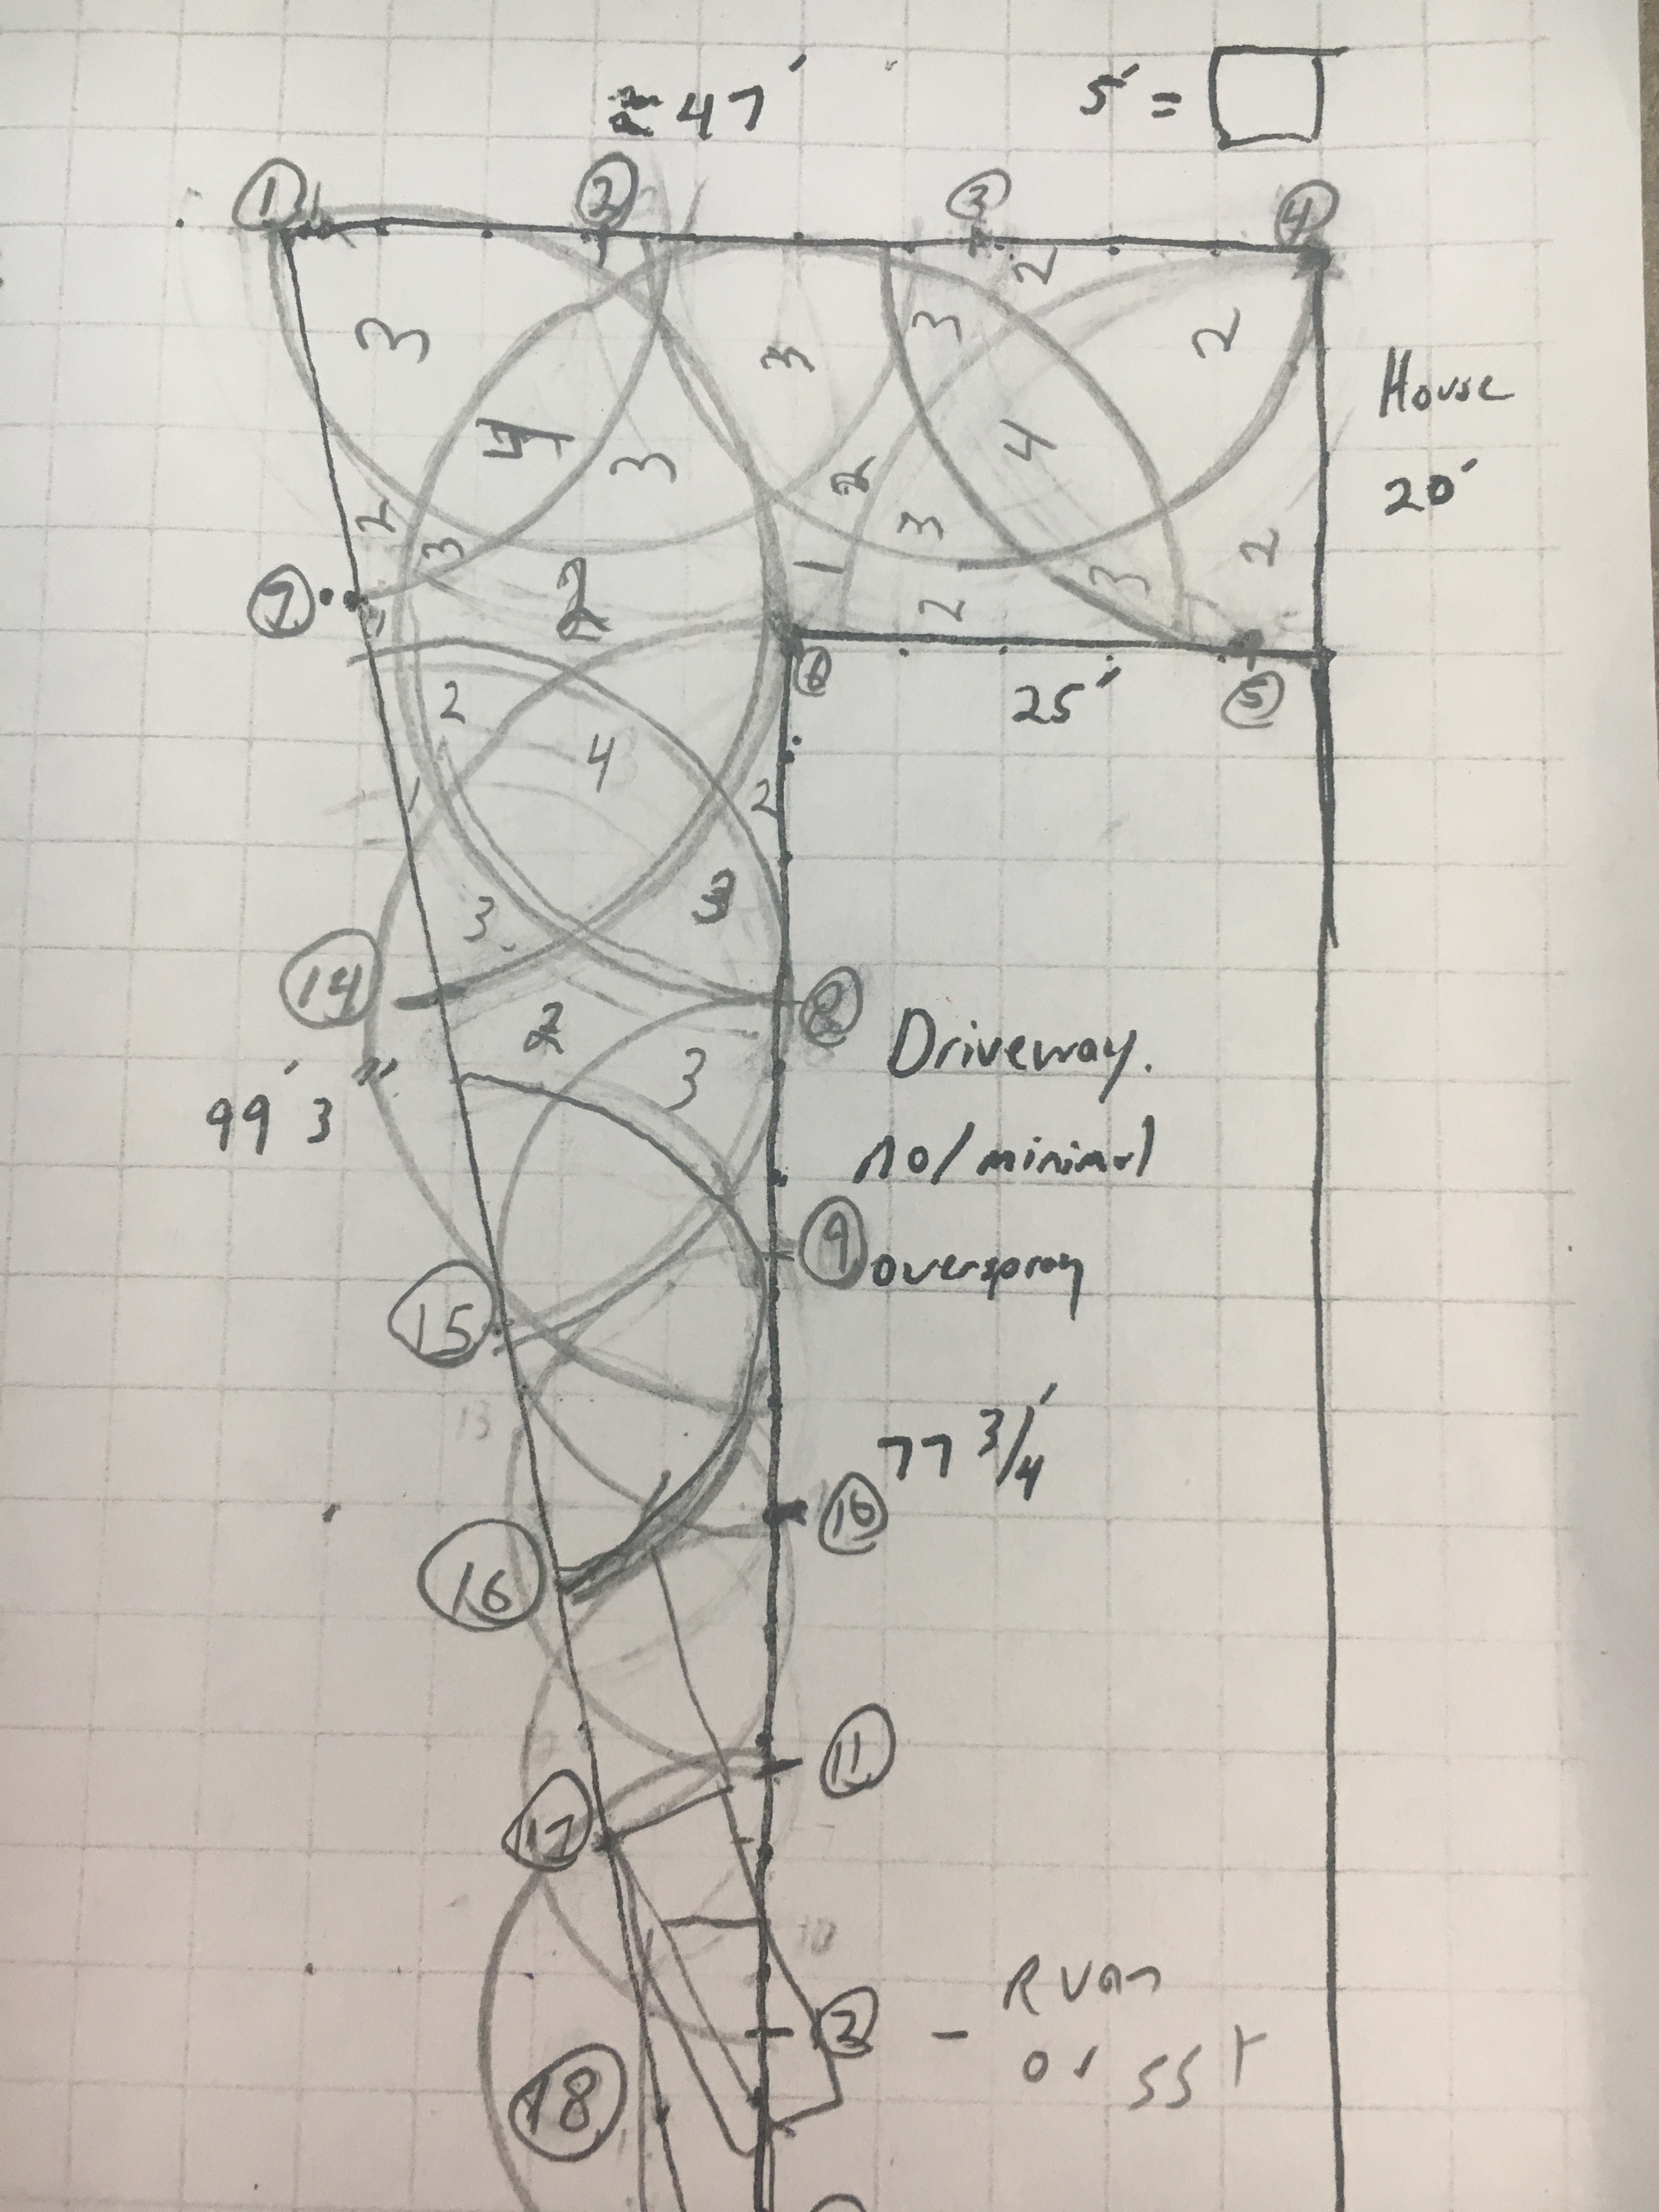 ≈ 47' 5' =
1 2 3 4
2
3 3 3 2
House
4 3 4
20'
2 3 2 3 2
7 2 1 3
2
6 25' 5
2 4
1 2
3 3
14 8
2 3 Driveway.
99' 3" no/minimal
9 overspray
15
13
77 3/4'
16 10
11
17
10
2 - R Van
or SST
18